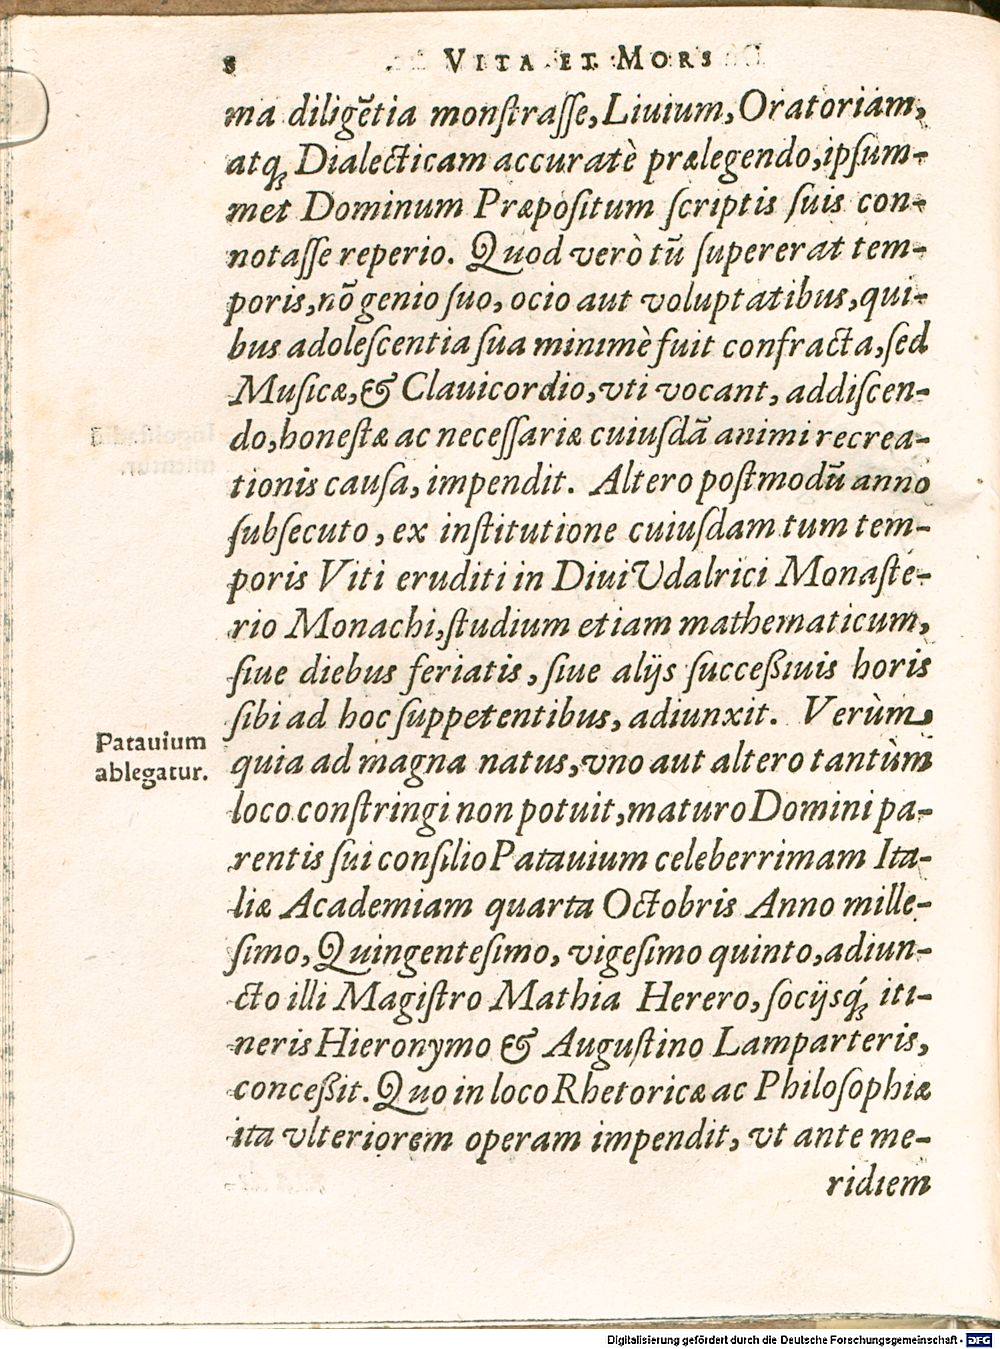 8 VITA ET MORS
ma diligẽtia monſtraſſe, Liuium, Oratoriam,
atq́ꝫ Dialecticam accuratè prælegendo, ipſum-
met Dominum Præpoſitum ſcriptis ſuis con-
notaſſe reperio. Quod verò tũ ſupererat tem-
poris, nõ genio ſuo, ocio aut voluptatibus, qui-
bus adoleſcentia ſua minimè fuit confracta, ſed
Muſicæ, & Clauicordio, vti vocant, addiſcen-
do, honeſtæ ac neceſſariæ cuiuſdã animi recrea-
tionis cauſa, impendit. Altero poſtmodũ anno
ſubſecuto, ex inſtitutione cuiuſdam tum tem-
poris Viti eruditi in Diui Udalrici Monaſte-
rio Monachi, ſtudium etiam mathematicum,
ſiue diebus feriatis, ſiue alijs ſucceßiuis horis
ſibi ad hoc ſuppetentibus, adiunxit. Verùm
Patauium
ablegatur.
quia ad magna natus, vno aut altero tantùm
loco conſtringi non potuit, maturo Domini pa-
rentis ſui conſilio Patauium celeberrimam Ita-
liæ Academiam quarta Octobris Anno mille-
ſimo, Quingenteſimo, vigeſimo quinto, adiun-
cto illi Magiſtro Mathia Herero, ſocijsq́ꝫ iti-
neris Hieronymo & Auguſtino Lamparteris,
conceßit. Quo in loco Rhetoricæ ac Philoſophiæ
ita vlteriorem operam impendit, vt ante me-
ridiem
Digitalisierung gefördert durch die Deutsche Forschungsgemeinschaft - DFG